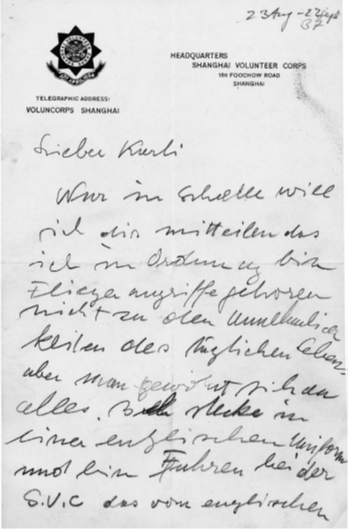 23 Aug - 22 Sept
37
HEADQUARTERS
SHANGHAI VOLUNTEER CORPS
180 FOOCHOW ROAD
SHANGHAI
TELEGRAPHIC ADDRESS:
VOLUNCORPS SHANGHAI
Lieber Kurli
Nur in schelle will
ich dir mitteilen das
ich in Ordnung bin
Fliegerangriffe gehoren
nicht zu den
keiten des täglichen Lebens
aber man gewöhnt sich an
alles. Ich stecke in
einer englischen Uniform
und bin Fuhrer bei der
S.V.C das vom englischen